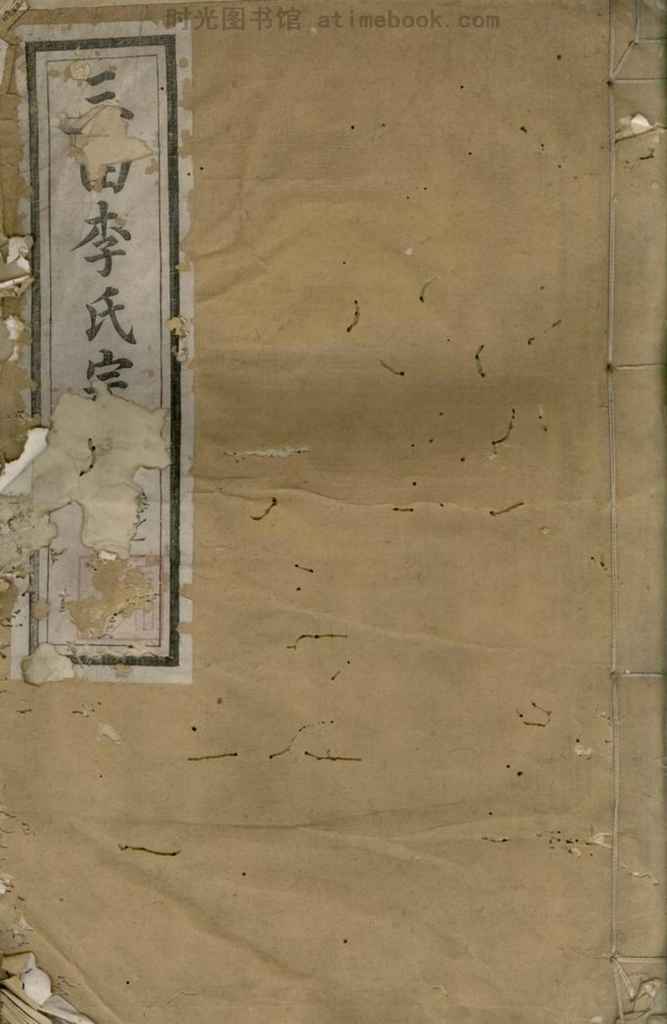 时光图书馆 atimebook.com
三田李氏宗